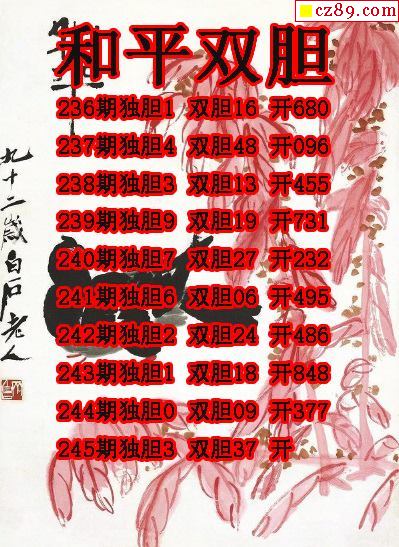 cz89.com
和平双胆
236期独胆1 双胆16 开680
237期独胆4 双胆48 开096
238期独胆3 双胆13 开455
239期独胆9 双胆19 开731
240期独胆7 双胆27 开232
241期独胆6 双胆06 开495
242期独胆2 双胆24 开486
243期独胆1 双胆18 开848
244期独胆0 双胆09 开377
245期独胆3 双胆37 开
九十二歲白石老人